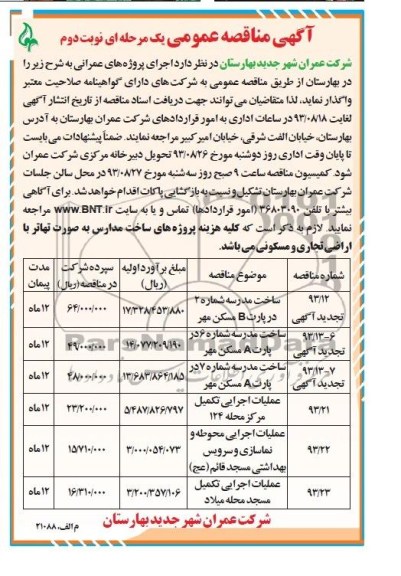 آگهی مناقصه عمومی یک مرحله ای نوبت دوم
شرکت عمران شهر جدید بهارستان در نظر دارد اجرای پروژه‌های عمرانی به شرح زیر را
در بهارستان از طریق مناقصه عمومی به شرکت‌های دارای گواهینامه صلاحیت معتبر
واگذار نماید، لذا متقاضیان می توانند جهت دریافت اسناد مناقصه از تاریخ انتشار آگهی
لغایت ۹۳/۰۸/۱۸ در ساعات اداری به امور قراردادهای شرکت عمران بهارستان به آدرس
بهارستان، خیابان الفت شرقی، خیابان امیر کبیر مراجعه نمایند. ضمناً پیشنهادات می بایست
تا پایان وقت اداری روز دوشنبه مورخ ۹۳/۰۸/۲۶ تحویل دبیرخانه مرکزی شرکت عمران
شود. کمیسیون مناقصه ساعت ۹ صبح روز سه شنبه مورخ ۹۳/۰۸/۲۷ در محل سالن جلسات
شرکت عمران بهارستان تشکیل و نسبت به بازگشایی پاکات اقدام خواهد شد. برای آگاهی
بیشتر با تلفن ۳۶۸۰۳۰۹۰ (امور قراردادها) تماس و یا به سایت www.BNT.ir مراجعه
نمایید. لازم به ذکر است که کلیه هزینه پروژه های ساخت مدارس به صورت تهاتر با
اراضی تجاری و مسکونی می باشد.
شماره مناقصه موضوع مناقصه مبلغ برآورد اولیه (ریال) سپرده شرکت در مناقصه (ریال) مدت پیمان
۹۳/۱۲ تجدید آگهی ساخت مدرسه شماره ۲ در پارت B مسکن مهر ۱۷/۳۲۸/۴۵۳/۸۸۰ ۶۴/۰۰۰/۰۰۰ ۱۲ ماه
۹۳/۱۳-۶ تجدید آگهی ساخت مدرسه شماره ۶ در پارت A مسکن مهر ۱۴/۰۷۷/۲۰۹/۱۹۰ ۴۹/۰۰۰/۰۰۰ ۱۲ ماه
۹۳/۱۳-۷ تجدید آگهی ساخت مدرسه شماره ۷ در پارت A مسکن مهر ۱۳/۶۸۳/۸۶۴/۱۸۵ ۴۸/۰۰۰/۰۰۰ ۱۲ ماه
۹۳/۲۱ عملیات اجرایی تکمیل مرکز محله ۱۲۴ ۵/۴۸۷/۸۲۶/۷۹۷ ۲۳/۲۰۰/۰۰۰ ۱۲ ماه
۹۳/۲۲ عملیات اجرایی محوطه و نماسازی و سرویس بهداشتی مسجد قائم (عج) ۳/۰۰۰/۰۵۴/۰۷۳ ۱۵/۷۱۰/۰۰۰ ۱۲ ماه
۹۳/۲۳ عملیات اجرایی تکمیل مسجد محله میلاد ۳/۲۰۰/۳۵۷/۱۰۶ ۱۶/۳۱۰/۰۰۰ ۱۲ ماه
شرکت عمران شهر جدید بهارستان
م الف. ۲۱۰۸۸